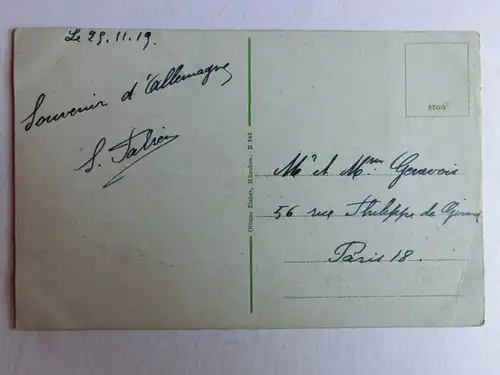 Le 25.11.19.
Souvenir d'Allemagne
S. Fabien
8500
Ottmar Zieher, München. R 543
Mr et Mme Genevois
56 rue Philippe de Girard
Paris 18.